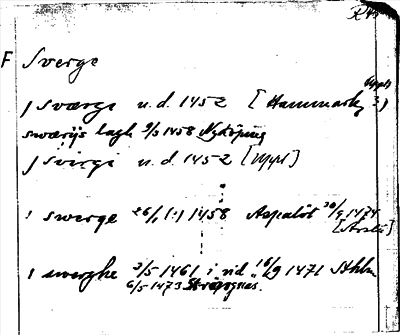 F Sverge
j sværge u.d. 1452 [Hammarkz Uppl 3)
swærijs lagh 9/3 1458 Nyköping
j svirgi u.d. 1452 [Uppl]
i swerge 26/1 (?) 1458 Aspalöt 30/9 1474
i swerghe 3/5 1461 i vid 16/9 1471 Sthlm
6/5 1473 Strägnäs.